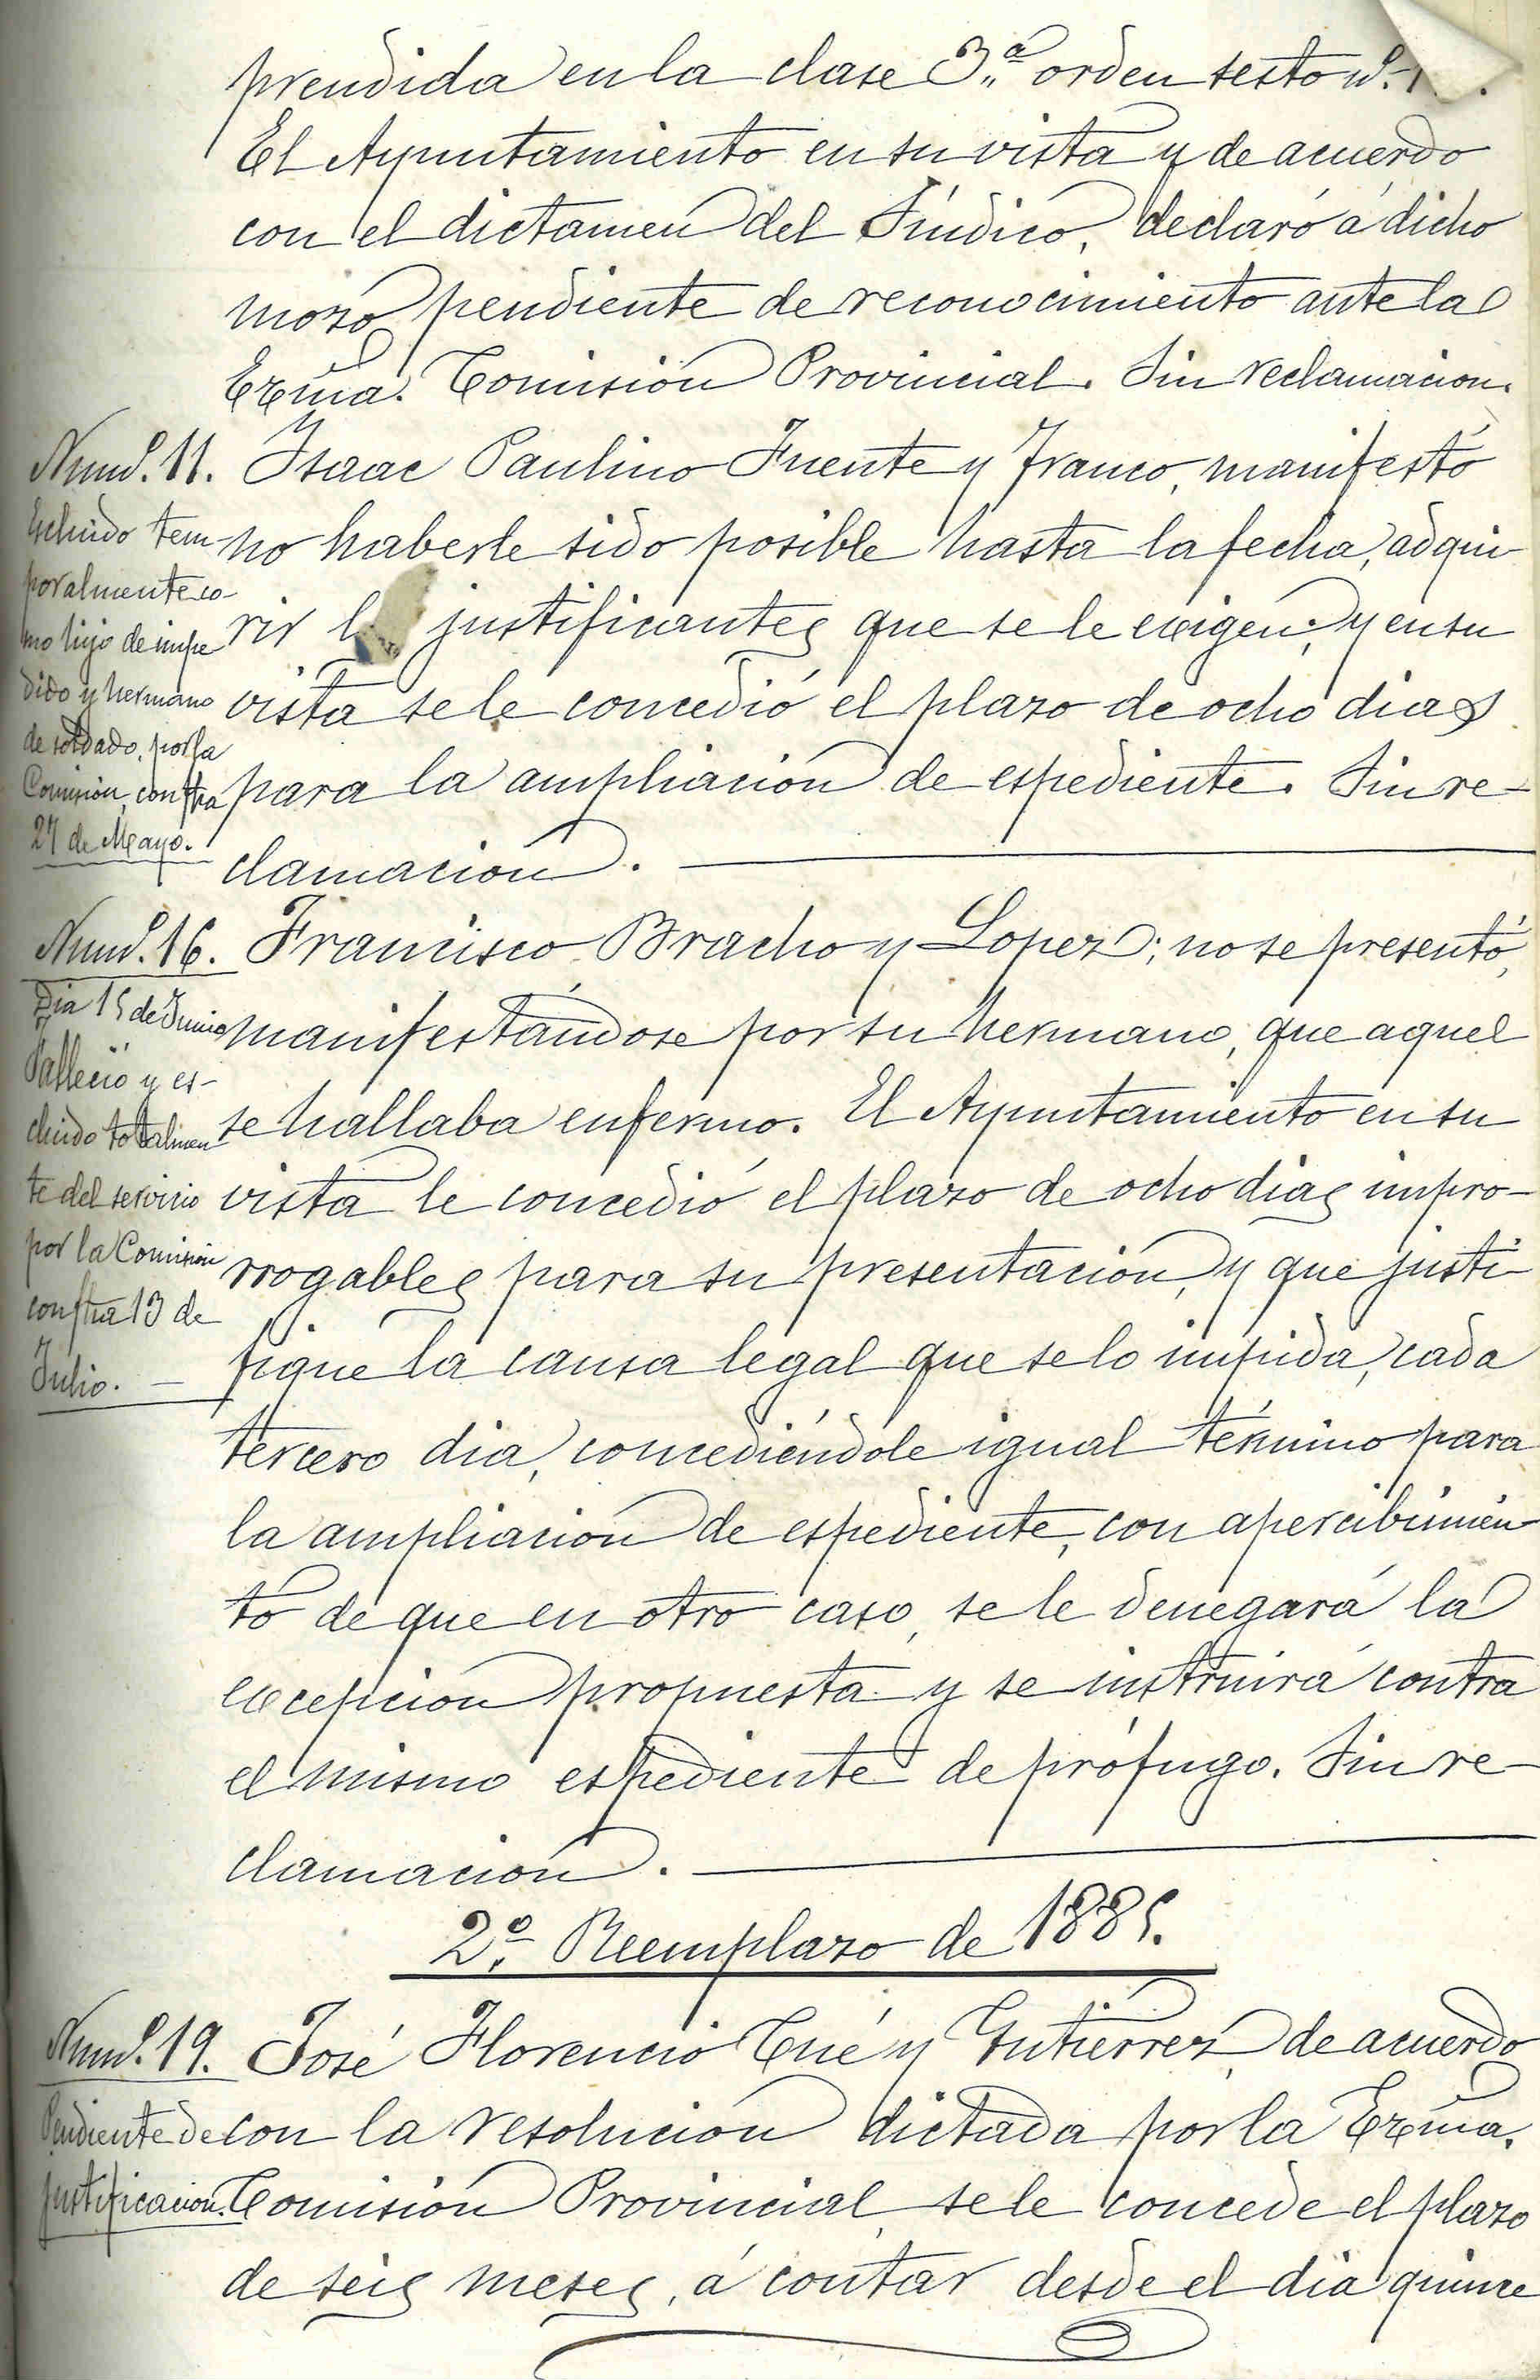 prendida en la clase 3.ª orden sesto nº.
El Ayuntamiento en su vista y de acuerdo
con el dictamen del Síndico, declaró á dicho
mozo pendiente de reconocimiento ante la
Exma. Comisión Provincial. Sin reclamacion.
Numº. 11.
Escluido tem-
poralmente co-
mo hijo de impe
dido y hermano
de soldado, por la
Comisión, con fha
27 de Mayo.
Isaac Paulino Fuente y Franco, manifestó
no haberle sido posible hasta la fecha, adqui-
rir justificantes que se le exigen; y en su
vista se le concedió el plazo de ocho dias
para la ampliación de espediente. Sin re-
clamación.
Numº. 16.
Dia 15 de Junio
Falleció y es-
cluido totalmen
te del servicio
por la Comisión
con fha 13 de
Julio. —
Francisco Bracho y Lopez; no se presentó,
manifestándose por su hermano, que aquel
se hallaba enfermo. El Ayuntamiento en su
vista le concedió el plazo de ocho dias impro-
rrogables para su presentación, y que justi-
fique la causa legal que se lo impida, cada
tercero dia, concediéndole igual término para
la ampliación de espediente, con apercibimien-
to de que en otro caso, se le denegará la
excepción propuesta y se instruirá contra
el mismo espediente de prófugo. Sin re-
clamación.
2º. Reemplazo de 1885.
Numº. 19.
Pendiente de
justificacion.
José Florencio Cué y Gutiérrez, de acuerdo
con la resolución dictada por la Exma.
Comisión Provincial, se le concede el plazo
de seis meses, á contar desde el dia quince